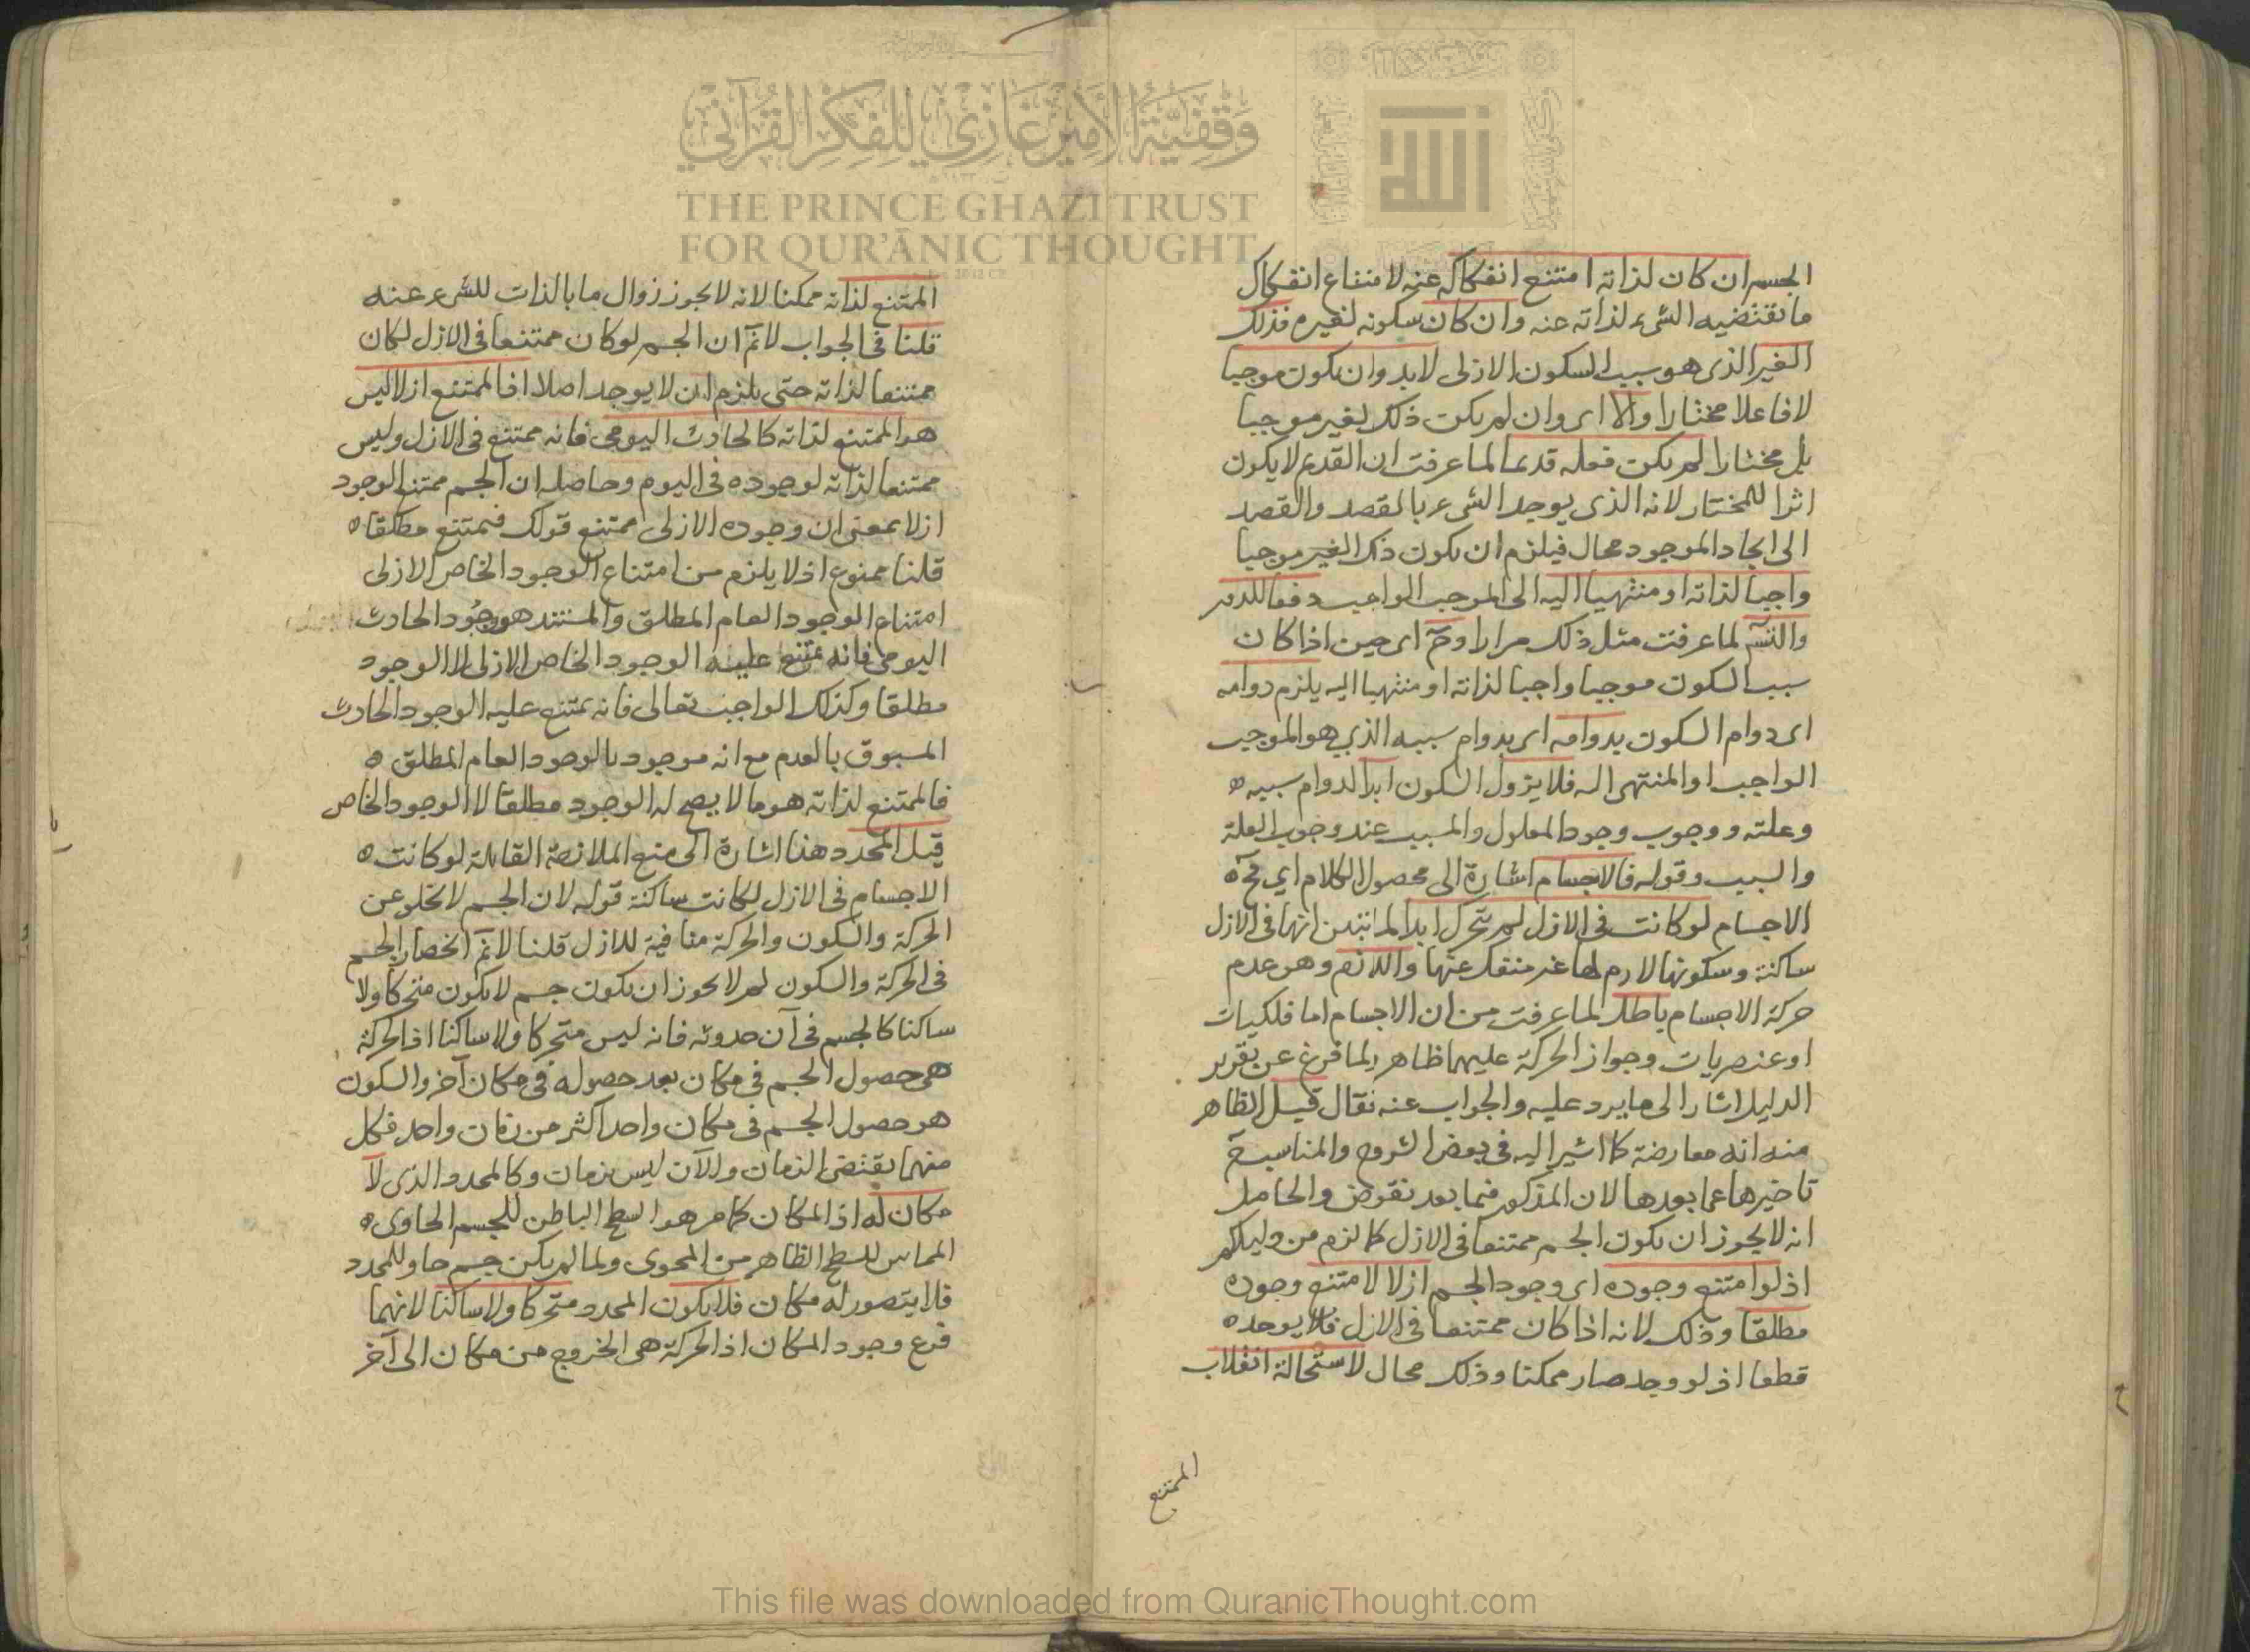 الجسم ان كان لذاته امتنع انفكاكه عنه لامتناع انفكاك
ما تقتضيه الشيء لذاته عنه وان كان سكونه لغيره فذلك
الغير الذى هو سبب السكون الازلى لا بد وان يكون موجبا
لا فاعلا مختارا والا اى وان لم يكن ذلك الغير موجبا
بل مختارا لم يكن فعله قديما لما عرفت ان القديم لا يكون
اثرا للمختار لانه الذى يوجد الشىء بالقصد والقصد
الى ايجاد الموجود محال فيلزم ان يكون ذلك الغير موجبا
واجبا لذاته او منتهيا اليه الى الموجب الواجب دفعا للدور
والتسـ لما عرفت مثل ذلك مرارا وحـ اى حين اذا كان
سبب السكون موجبا واجبا لذاته او منتهيا اليه يلزم دوامه
اى دوام السكون بدوامه اى بدوام سببه الذي هو الموجب
الواجب او المنتهى اليه فلا يزول السكون ابدا لدوام سببه ه
وعلته ووجوب وجود المعلول والمسبب عند وجوب العلة
والسبب وقوله فالاجسام اشارة الى محصول الكلام اي فحـ ه
الاجسام لو كانت فى الازل لم تتحرك ابدا لما تبين انها فى الازل
ساكنة وسكونها لازم لها غير منفك عنها واللازم وهو عدم
حركة الاجسام باطل لما عرفت من ان الاجسام اما فلكيات
او عنصريات وجواز الحركة عليهما ظاهر ولما فرغ عن تقرير
الدليل اشار الى ما يرد عليه والجواب عنه فقال قيل الظاهر
منه انه معارضة كما اشير اليه فى بعض الشروح والمناسب حـ
تاخيرها عما بعدها لان المذكور فيما بعد نقوض والحاصل
انه لا يجوز ان يكون الجسم ممتنعا فى الازل كما لزم من دليلكم
اذ لو امتنع وجوده اى وجود الجسم ازلا لامتنع وجوده
مطلقا وذلك لانه اذا كان ممتنعا فى الازل فلا يوجد ه
قطعا اذ لو وجد صار ممكنا وذلك محال لاستحالة انقلاب
الممتنع
الممتنع لذاته ممكنا لانه لا يجوز زوال ما بالذات للشىء عنه
قلنا فى الجواب لانمـ ان الجسم لو كان ممتنعا فى الازل لكان
ممتنعا لذاته حتى يلزم ان لا يوجد اصلا اذ الممتنع ازلا ليس
هو الممتنع لذاته كالحادث اليومى فانه ممتنع فى الازل وليس
ممتنعا لذاته لوجوده فى اليوم وحاصله ان الجسم ممتنع الوجود
ازلا بمعنى ان وجوده الازلى ممتنع قولك فيمتنع مطلقا ه
قلنا ممنوع اذ لا يلزم من امتناع الوجود الخاص الازلى
امتناع الوجود العام المطلق والمستند هو وجود الحادث
اليومى فانه يمتنع عليه الوجود الخاص الازلى لا الوجود
مطلقا وكذلك الواجب تعالى فانه يمتنع عليه الوجود الحادث
المسبوق بالعدم مع انه موجود بالوجود العام المطلق ه
فالممتنع لذاته هو ما لا يصح له الوجود مطلقا لا الوجود الخاص
قيل المحدد هذا اشارة الى منع الملازمة القائلة لو كانت ه
الاجسام فى الازل لكانت ساكنة قوله لان الجسم لا تخلو عن
الحركة والسكون والحركة منافية للازل قلنا لانمـ انحصار الجسم
فى الحركة والسكون لم لا يجوز ان يكون جسم لا يكون متحركا ولا
ساكنا كالجسم فى آن حدوثه فانه ليس متحركا ولا ساكنا اذ الحركة
هى حصول الجسم فى مكان بعد حصوله فى مكان آخر والسكون
هو حصول الجسم فى مكان واحد اكثر من زمان واحد فكل
منهما يقتضى الزمان والآن ليس بزمان وكالمحدد الذى لا
مكان له اذ المكان كما مر هو السطح الباطن للجسم الحاوى ه
المماس للسطح الظاهر من المحوى ولما لم يكن جسم حاو للمحدد
فلا يتصور له مكان فلا يكون المحدد متحركا ولا ساكنا لانهما
فرع وجود المكان اذ الحركة هى الخروج من مكان الى آخر
وقفية الأمير غازي للفكر القرآني
THE PRINCE GHAZI TRUST
FOR QUR'ĀNIC THOUGHT
الله
This file was downloaded from QuranicThought.com